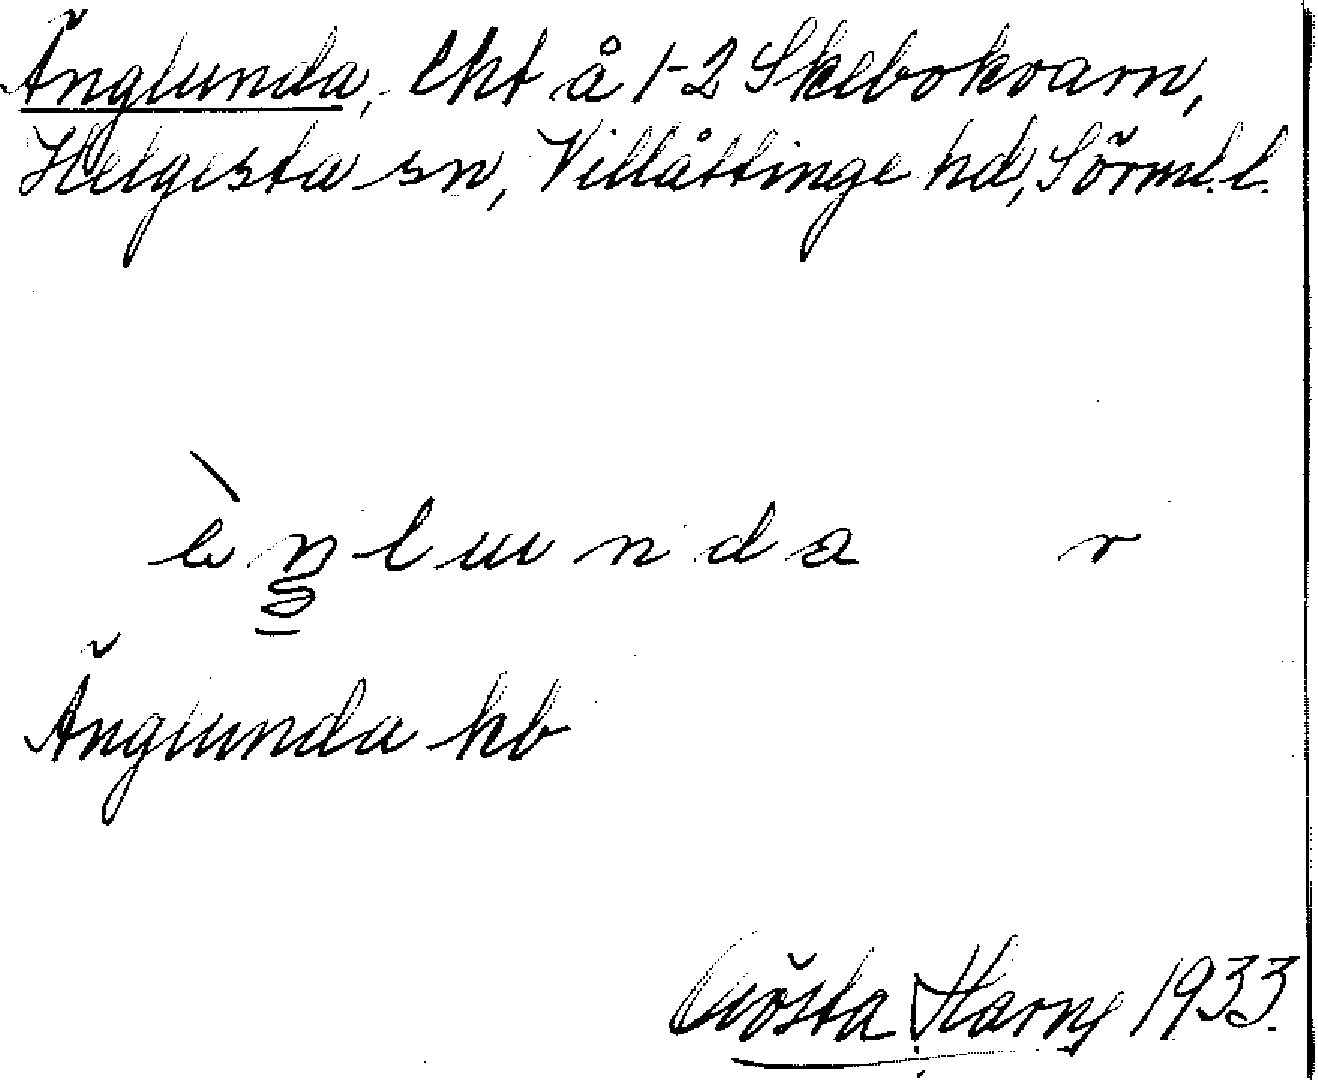 Änglunda, lht å 1-2 Skebokvarn,
Helgesta sn, Villåttinge hd, Sörml. l.
èŋlunda r
Änglunda kb
Gösta Harry 1933.